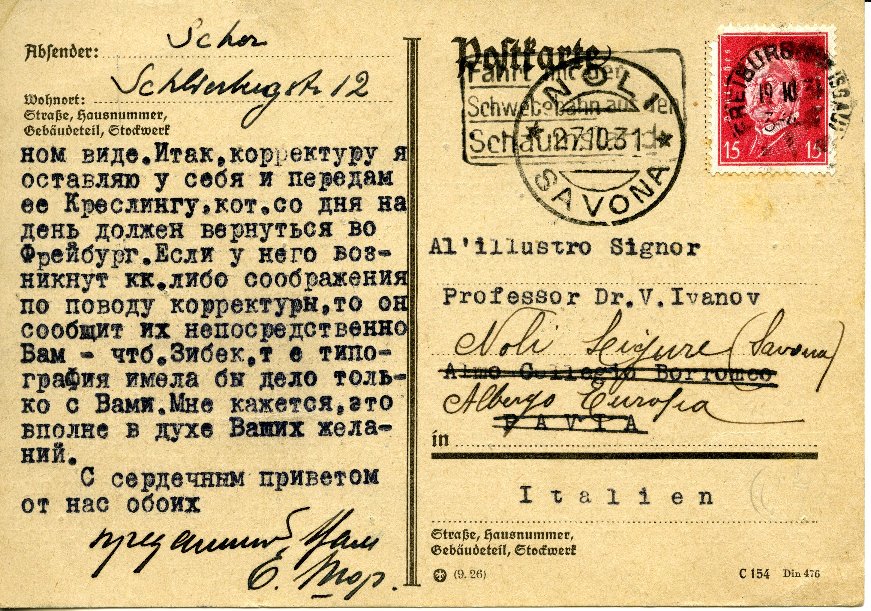 Absender: Schor
Schlierbergstr 12
Wohnort:
Straße, Hausnummer,
Gebäudeteil, Stockwerk
ном виде.Итак,корректуру я
оставляю у себя и передам
ее Креслингу,кот.со дня на
день должен вернуться во
Фрейбург.Если у него воз-
никнут кк.либо соображения
по поводу корректуры,то он
сообщит их непосредственно
Вам - чтб.Зибек,т е типо-
графия имела бы дело толь-
ко с Вами.Мне кажется,это
вполне в духе Ваших жела-
ний.
С сердечным приветом
от нас обоих
преданный Вам
Е. Шор.
Postkarte
Fahrt mit der
Schwebebahn auf den
Schauinsland
NOLI
27.10.31
SAVONA
FREIBURG
19.10.31
15 15
Al'illustro Signor
Professor Dr.V.Ivanov
Noli Ligure (Savona)
Almo Collegio Borromeo
Albergo Europa
PAVIA
in
Italien
Straße, Hausnummer,
Gebäudeteil, Stockwerk
(9. 26)
C 154 Din 476